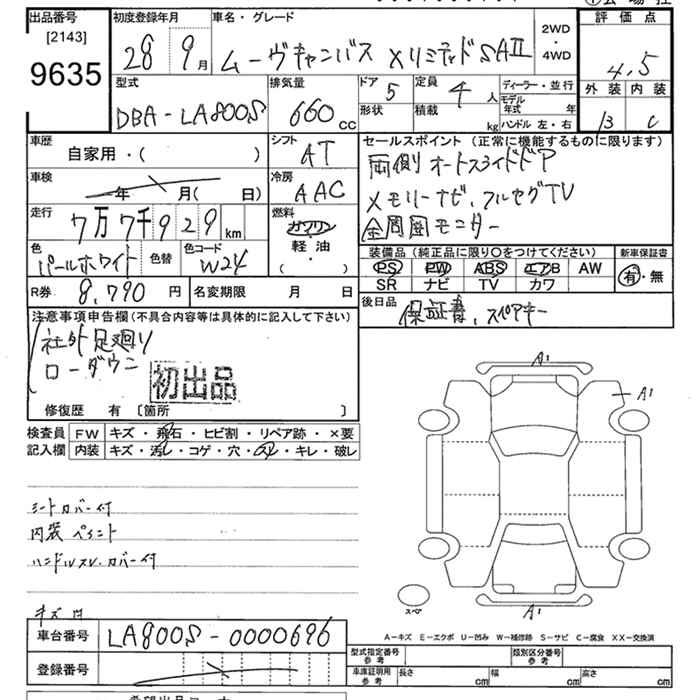 出品番号 初度登録年月 車名・グレード 評価点
[2143]
9635
28 9月 ムーヴキャンバス XリミテッドSAⅡ 2WD・4WD 4.5
型式 排気量 ドア 5 定員 4人 ディーラー・並行 外装 内装
DBA-LA800S 660cc 形状 積載 kg モデル年式 年 B C
ハンドル 左・右
車歴 シフト セールスポイント (正常に機能するものに限ります)
自家用・( ) AT 両側オートスライドドア
車検 年 月( 日) 冷房 AAC メモリーナビ、フルセグTV
走行 7万7千929km 燃料 ガソリン 全周囲モニター
軽油・( )
色 パールホワイト 色替 色コード W24 装備品 (純正品に限り○をつけてください) 新車保証書
PS PW ABS エアB AW 有・無
SR ナビ TV カワ
R券 8,790円 名変期限 月 日 後日品 保証書、スペアキー
注意事項申告欄(不具合内容等は具体的に記入して下さい)
社外足廻り
ローダウン
初出品
修復歴 有 [箇所 ]
A1
A1
検査員記入欄 FW キズ・飛石・ヒビ割・リペア跡・×要
内装 キズ・汚レ・コゲ・穴・スレ・キレ・破レ
シートカバー付
内装ペイント
ハンドルスレ・カバー付
スペア
A1
A-キズ E-エクボ U-凹み W-補修跡 S-サビ C-腐食 XX-交換済
車台番号 LA800S-0000696
登録番号
型式指定番号 参考 類別区分番号 参考
車庫証明用 参考 長さ cm 幅 cm 高さ cm